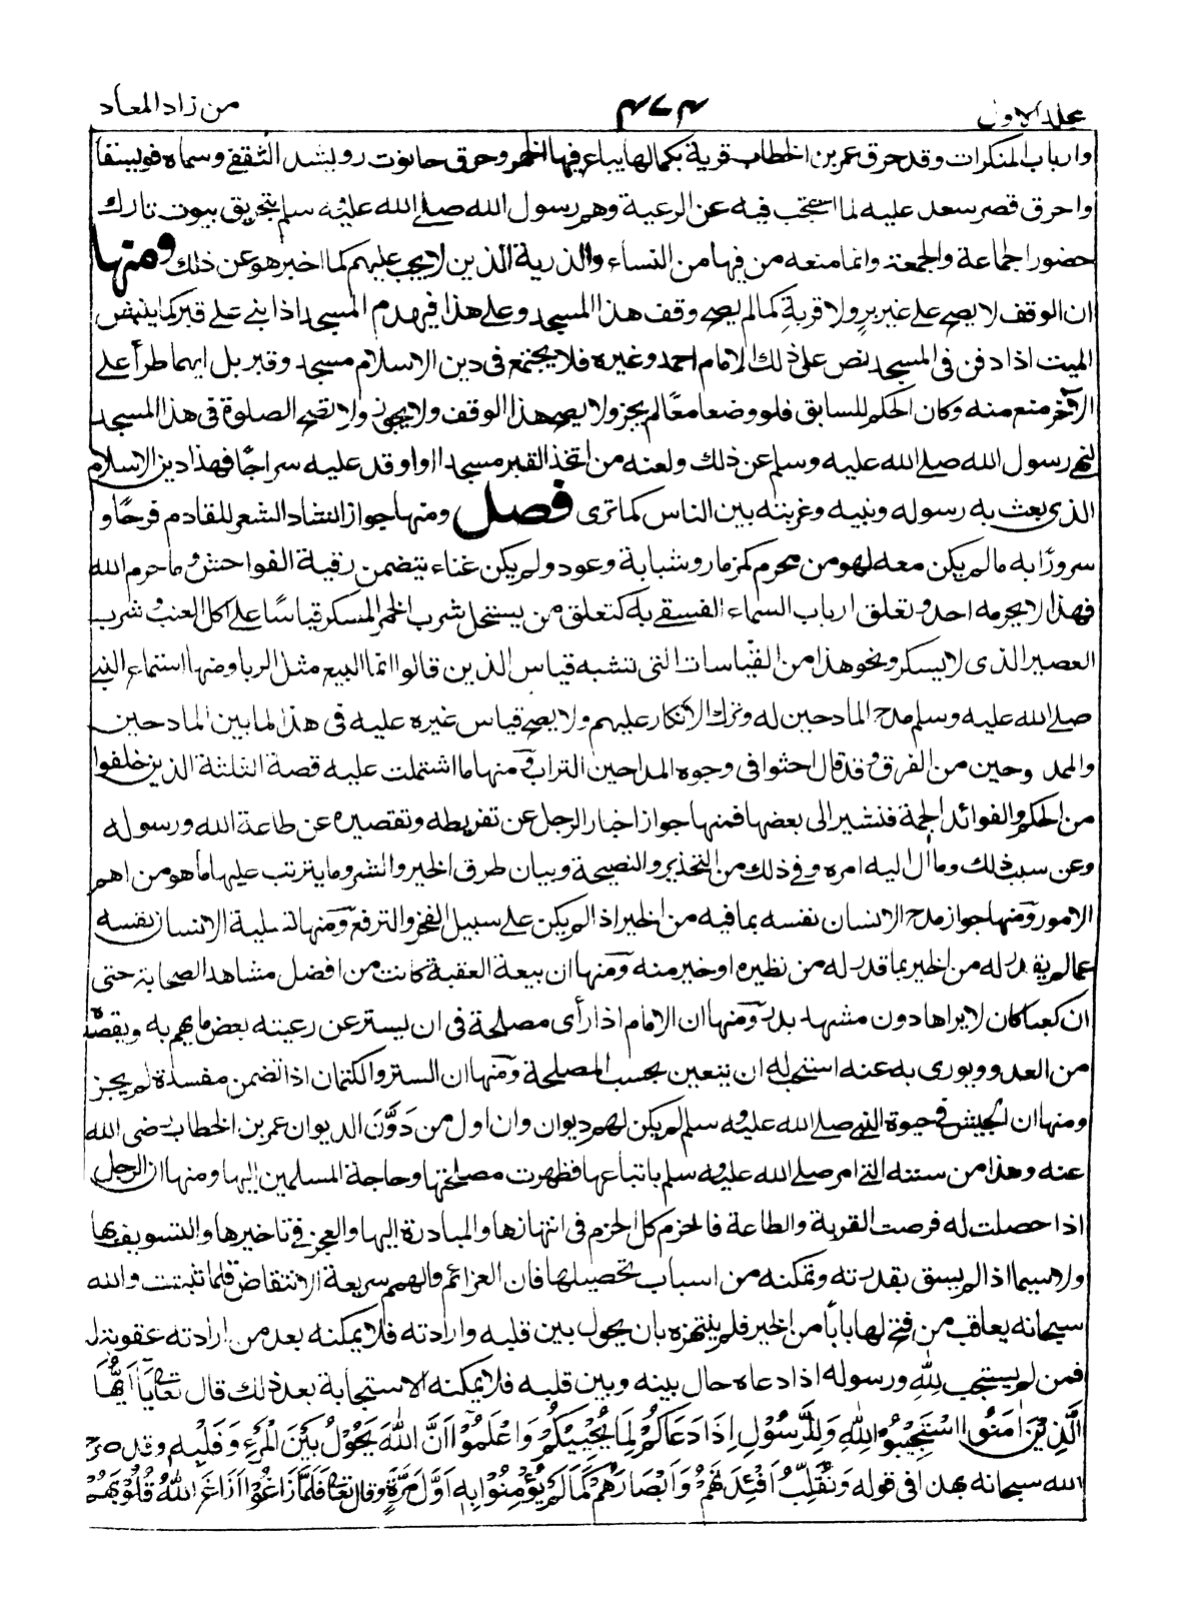 مجلد الاول ٤٧٤ من زاد المعاد
وارباب المنكرات وقد حرق عمر بن الخطاب قرية بكمالها يباع فيها الخمر وحرق حانوت رويشد الثقفى وسماه فويسقا
واحرق قصر سعد عليه لما احتجب فيه عن الرعية وهم رسول الله صلى الله عليه وسلم بتحريق بيوت تارك
حضور الجماعة والجمعة وانما منعه من فيها من النساء والذرية الذين لا يجب عليهم كما اخبر هو عن ذلك ومنها
ان الوقف لا يصح على غير بر ولا قربة كما لم يصح وقف هذا المسجد وعلى هذا فيهدم المسجد اذا بنى على قبر كما ينبش
الميت اذا دفن فى المسجد نص على ذلك الامام احمد وغيره فلا يجتمع فى دين الاسلام مسجد وقبر بل ايهما طرأ على
الآخر منع منه وكان الحكم للسابق فلو وضعا معًا لم يجز ولا يصح هذا الوقف ولا يجوز ولا تصح الصلوة فى هذا المسجد
لنهى رسول الله صلى الله عليه وسلم عن ذلك ولعنه من اتخذ القبر مسجدا او اوقد عليه سراجًا فهذا دين الاسلام
الذى بعث به رسوله ونبيه وغربته بين الناس كما ترى فصل ومنها جواز انشاد الشعر للقادم فرحًا و
سرورًا به ما لم يكن معه لهو من محرم كمزمار وشبابة وعود ولم يكن غناء يتضمن رقية الفواحش وما حرم الله
فهذا لا يحرمه احد وتعلق ارباب السماء الفسقى به كتعلق من يستحل شرب الخمر المسكر قياسًا على اكل العنب وشرب
العصير الذى لا يسكر ونحو هذا من القياسات التى تشبه قياس الذين قالوا انما البيع مثل الربا ومنها استماع النبى
صلى الله عليه وسلم مدح المادحين له وترك الانكار عليهم ولا يصح قياس غيره عليه فى هذا لما بين المادحين
والممدوحين من الفرق وقد قال احثوا فى وجوه المداحين التراب ومنها ما اشتملت عليه قصة الثلثة الذين خلفوا
من الحكم والفوائد الجمة فنشير الى بعضها فمنها جواز اخبار الرجل عن تفريطه وتقصيره عن طاعة الله ورسوله
وعن سبب ذلك وما آل اليه امره وفى ذلك من التحذير والنصيحة وبيان طرق الخير والشر وما يترتب عليها ما هو من اهم
الامور ومنها جواز مدح الانسان نفسه بما فيه من الخير اذا لم يكن على سبيل الفخر والترفع ومنها تسلية الانسان نفسه
عما لم يقدر له من الخير بما قدر له من نظيره او خير منه ومنها ان بيعة العقبة كانت من افضل مشاهد الصحابة حتى
ان كعبا كان لا يراها دون مشهد بدر ومنها ان الامام اذا رأى مصلحة فى ان يستر عن رعيته بعض ما يهم به ويقصده
من العدو ويورى به عنه استحب له ان يتعين بحسب المصلحة ومنها ان الستر والكتمان اذا تضمن مفسدة لم يجز
ومنها ان الجيش فى حيوة النبى صلى الله عليه وسلم لم يكن لهم ديوان وان اول من دَوَّنَ الديوان عمر بن الخطاب رضى الله
عنه وهذا من سنته التى امر صلى الله عليه وسلم باتباعها فظهرت مصلحتها وحاجة المسلمين اليها ومنها ان الرجل
اذا حصلت له فرصت القربة والطاعة فالحزم كل الحزم فى انتهازها والمبادرة اليها والعجز فى تاخيرها والتسويف بها
ولا سيما اذا لم يسق بقدرته وتمكنه من اسباب تحصيلها فان العزائم والهمم سريعة الانتقاض قلما تثبتت والله
سبحانه يعاقب من فتح لها باباً من الخير فلم ينتهزه بان يحول بين قلبه وارادته فلا يمكنه بعد من ارادته عقوبة له
فمن لم يستجب لِلّٰهِ ورسوله اذا دعاه حال بينه وبين قلبه فلا يمكنه الاستجابة بعد ذلك قال تعالى يَا اَيُّهَا
الَّذِيْنَ اٰمَنُوا اسْتَجِيْبُوْا لِلّٰهِ وَلِلرَّسُوْلِ اِذَا دَعَاكُمْ لِمَا يُحْيِيْكُمْ وَاعْلَمُوْا اَنَّ اللّٰهَ يَحُوْلُ بَيْنَ الْمَرْءِ وَقَلْبِهٖ وقد صرح
الله سبحانه بهذا فى قوله وَنُقَلِّبُ اَفْئِدَتَهُمْ وَاَبْصَارَهُمْ كَمَا لَمْ يُؤْمِنُوْا بِهٖ اَوَّلَ مَرَّةٍ وقال تعالى فَلَمَّا زَاغُوْا اَزَاغَ اللّٰهُ قُلُوْبَهُمْ